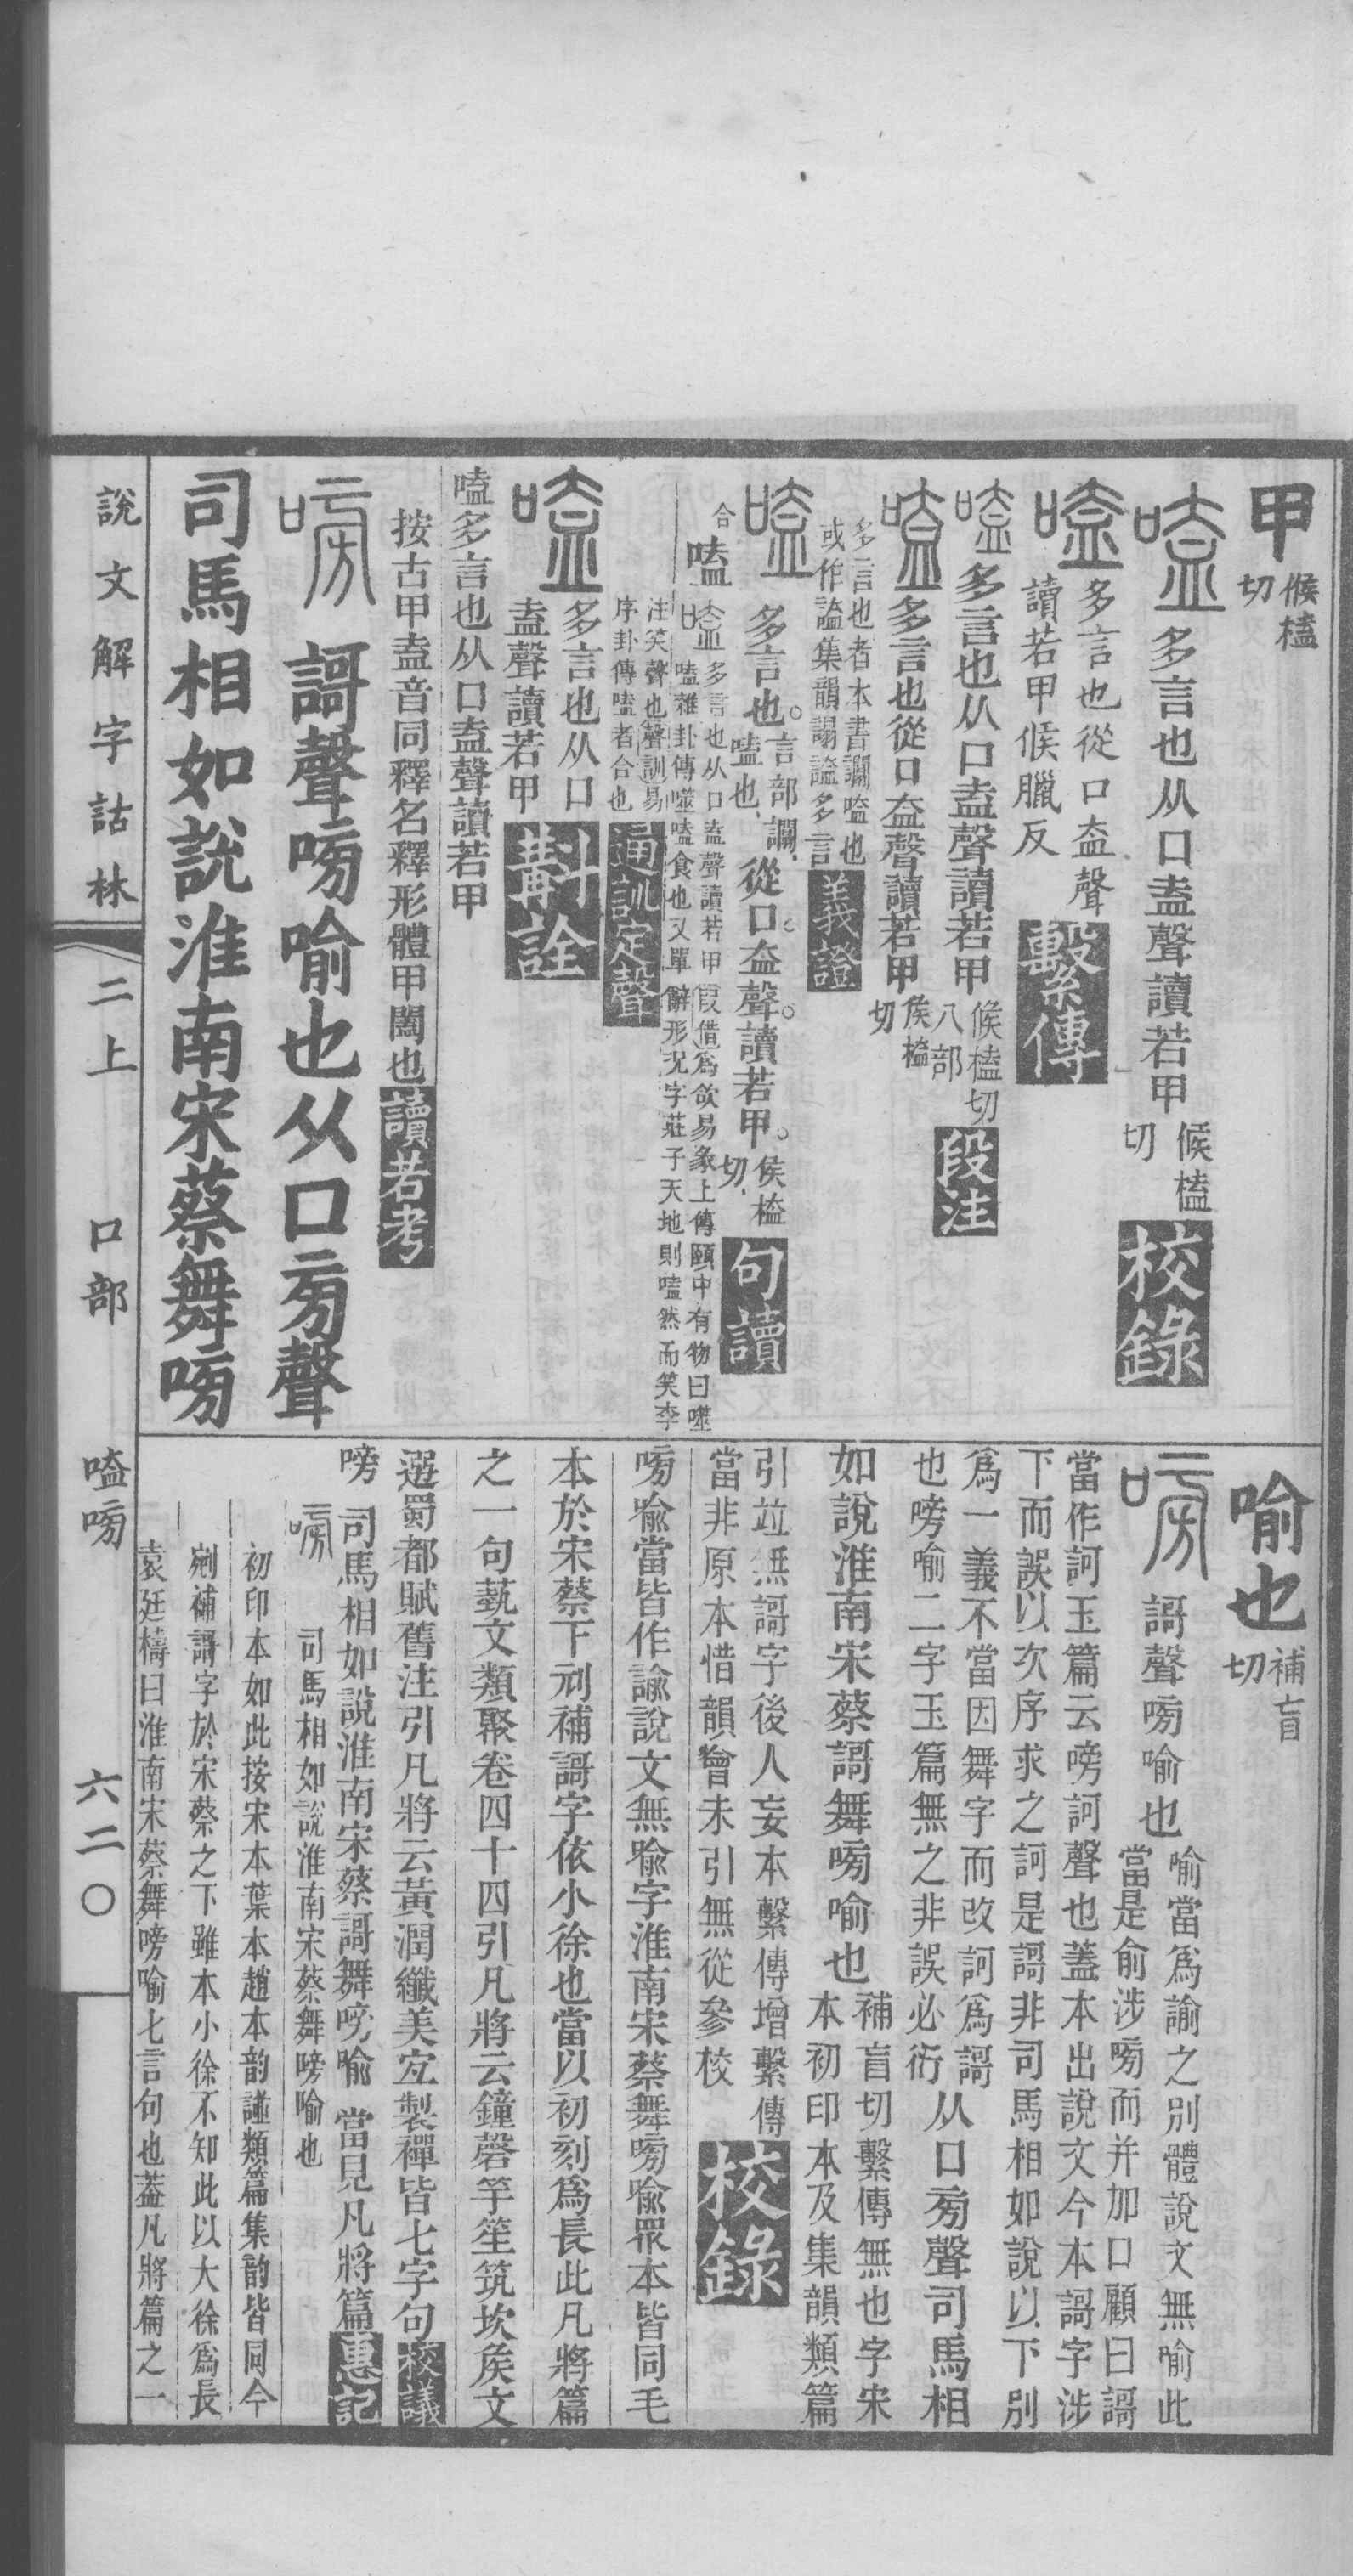 甲候榼切
嗑多言也从口盍聲讀若甲候榼切校錄
嗑多言也從口盍聲讀若甲候臘反繫傳
嗑多言也从口盍聲讀若甲候榼切八部段注
嗑多言也從口盍聲讀若甲侯榼切
多言也者本書讕嗑也或作謚集韻謚多言義證
嗑多言也。言部讕、嗑也、從口。盍聲。讀若甲。侯榼切、句讀
合嗑
嗑多言也从口盍聲讀若甲假借爲欱易彖上傳頤中有物曰噬
嗑雜卦傳噬嗑食也又單辭形況字莊子天地則嗑然而笑李
注笑聲也聲訓易序卦傳嗑者合也通訓定聲
嗑多言也从口盍聲讀若甲斠詮
嗑多言也从口盍聲讀若甲
按古甲盍音同釋名釋形體甲闔也讀若考
嗙謌聲嗙喻也从口㫄聲
司馬相如說淮南宋蔡舞嗙
喻也補盲切
嗙謌聲嗙喻也喻當爲諭之別體說文無喻此
當是俞涉嗙而并加口顧曰謌
當作訶玉篇云嗙訶聲也蓋本出說文今本謌字涉
下而誤以次序求之訶是謌非司馬相如說以下別
爲一義不當因舞字而改訶爲謌
也嗙喻二字玉篇無之非誤必衍从口㫄聲司馬相
如說淮南宋蔡謌舞嗙喻也補盲切繫傳無也字宋
本初印本及集韻類篇
引竝無謌字後人妄本繫傳增繫傳
當非原本惜韻會未引無從參校校錄
嗙喻當皆作諭說文無喻字淮南宋蔡舞嗙喻眾本皆同毛
本於宋蔡下刓補謌字依小徐也當以初刻爲長此凡將篇
之一句蓺文類聚卷四十四引凡將云鐘磬竽笙筑坎矦文
選蜀都賦舊注引凡將云黃潤纖美宐製襌皆七字句校議
嗙司馬相如說淮南宋蔡謌舞嗙喻當見凡將篇惠記
嗙司馬相如說淮南宋蔡舞嗙喻也
初印本如此按宋本葉本趙本韵譜類篇集韵皆同今
剜補謌字於宋蔡之下雖本小徐不知此以大徐爲長
袁廷檮曰淮南宋蔡舞嗙喻七言句也葢凡將篇之一
說文解字詁林
二上
口部
嗑嗙
六二〇